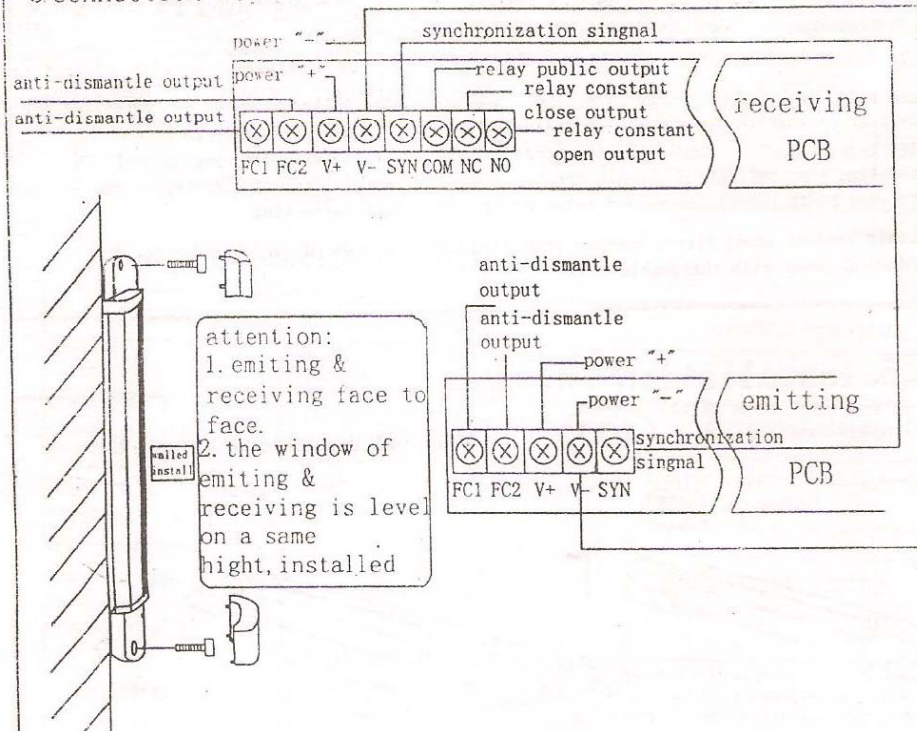 power "-"
synchronization singnal
anti-dismantle output
power "+"
relay public output
relay constant
close output
anti-dismantle output
relay constant
open output
FC1 FC2 V+ V- SYN COM NC NO
receiving
PCB
anti-dismantle
output
anti-dismantle
output
power "+"
power "-"
emitting
synchronization
singnal
PCB
FC1 FC2 V+ V- SYN
attention:
1. emiting &
receiving face to
face.
2. the window of
emiting &
receiving is level
on a same
hight, installed
walled
install